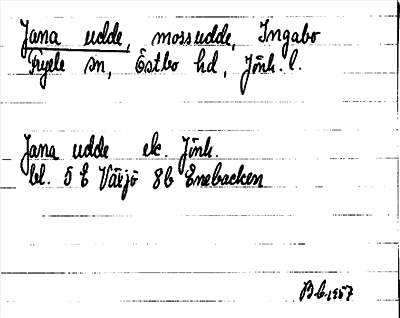 Jana udde, mossudde, Ingabo
Fryele sn, Östbo hd, Jönk. l.
Jana udde ek. Jönk.
bl. 5 E Växjö 8b Enebacken
Bb 1957